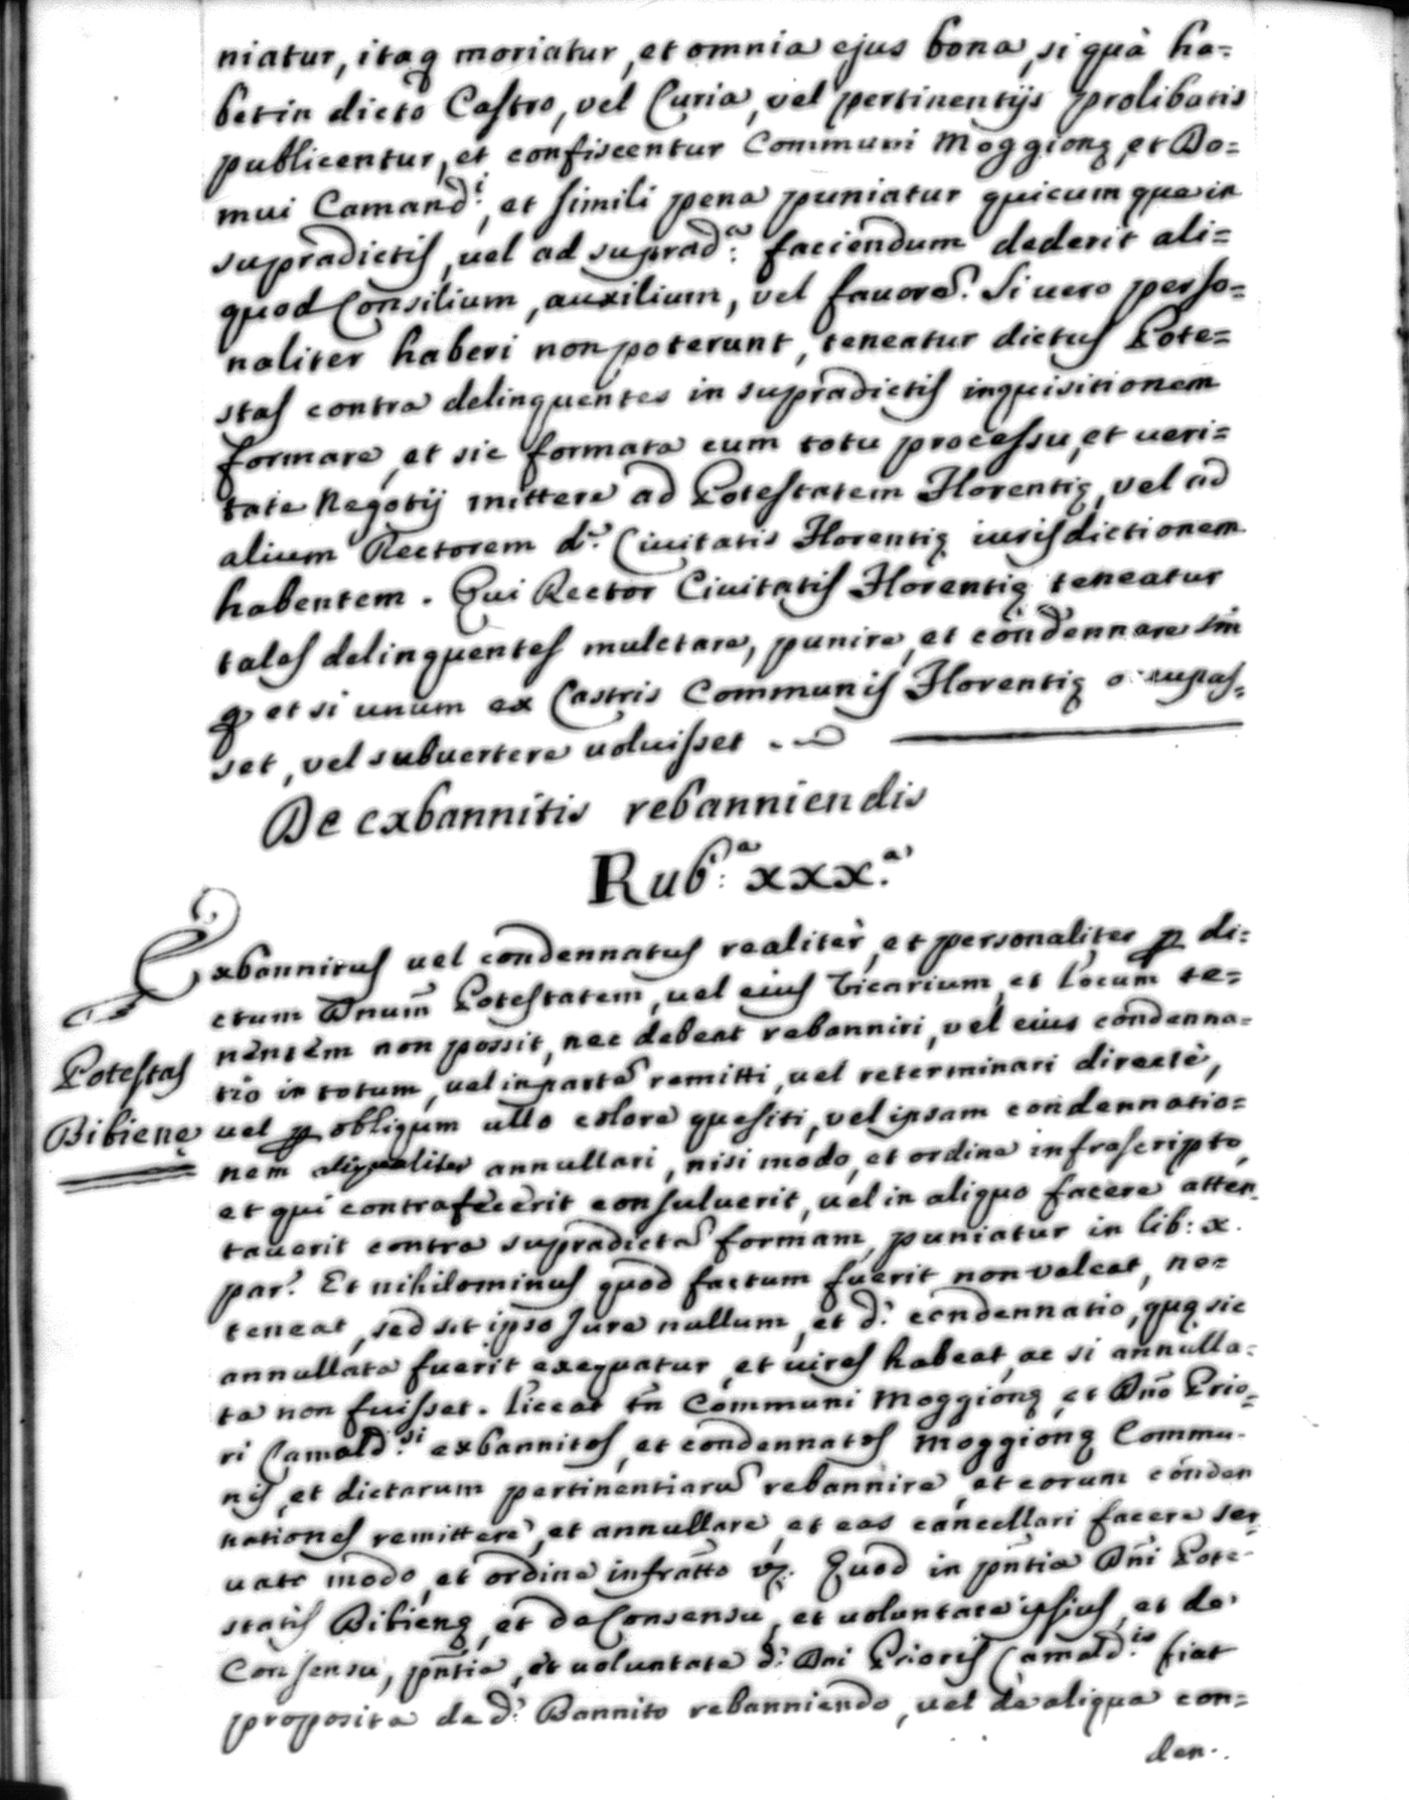 niatur, itaq moriatur, et omnia ejus bona, si quà ha=
bet in dicto Castro, vel Curia, vel pertinentijs prolibatis
publicentur, et confiscentur Communi Moggionę, et Do=
mui Camand:i, et simili pena puniatur quicumque in
supradictis, vel ad suprad:a faciendum dederit ali=
quod Consilium, auxilium, vel fauorē. Si uero perso=
naliter haberi non poterunt, teneatur dictus Pote=
stas contra delinquentes in supradictis inquisitionem
formare, et sic formata cum totu processu, et ueri=
tate Negotij mittere ad Potestatem Florentię, vel ad
alium Rectorem d: Ciuitatis Florentię iurisdictionem
habentem. Qui Rector Ciuitatis Florentię teneatur
tales delinquentes mulctare, punire, et condennare sm̄
q et si unum ex Castris Communis Florentię occupas=
set, vel subuertere uoluisset
De exbannitis rebanniendis
Rub:a xxx.a
Exbannitus uel condennatus realitèr, et personaliter p di=
ctum Dnum̄ Potestatem, uel eius Vicarium, et Locum te=
nentem non possit, nec debeat rebanniri, vel eius condenna=
tio in totum, uel in partē remitti, uel reterminari directè,
Potestas
Bibienę
uel p obliqum ullo colore quesiti, vel ipsam condennatio=
nem aliqualiter annullari, nisi modo, et ordine infrascripto,
et qui contrafecerit consuluerit, uel in aliquo facere atten
tauerit contra supradictā formam, puniatur in lib: x.
par? Et nihilominus quod factum fuerit non valeat, ne=
teneat, sed sit ipso Jure nullum, et d: condennatio, quę sic
annullata fuerit exequatur, et uires habeat, ac si annulla=
ta non fuisset. Liceat tn̄ Communi Moggionę, et Dn̄o Prio=
ri Camald:si exbannitos, et condennatos Moggionę Commu-
nis, et dictarum pertinentiarū rebannire, et eorum conden
nationes remittere, et annullare, et eas cancellari facere ser
uato modo, et ordine infratto vz. Quod in pn̄tia Dn̄i Pote-
statis Bibienę, et de Consensu, et uoluntate ipsius, et de
Consensu, pn̄tia, et uoluntate d: Dni Prioris Camald:is fiat
proposita de d: Bannito rebanniendo, vel de aliqua con=
den.